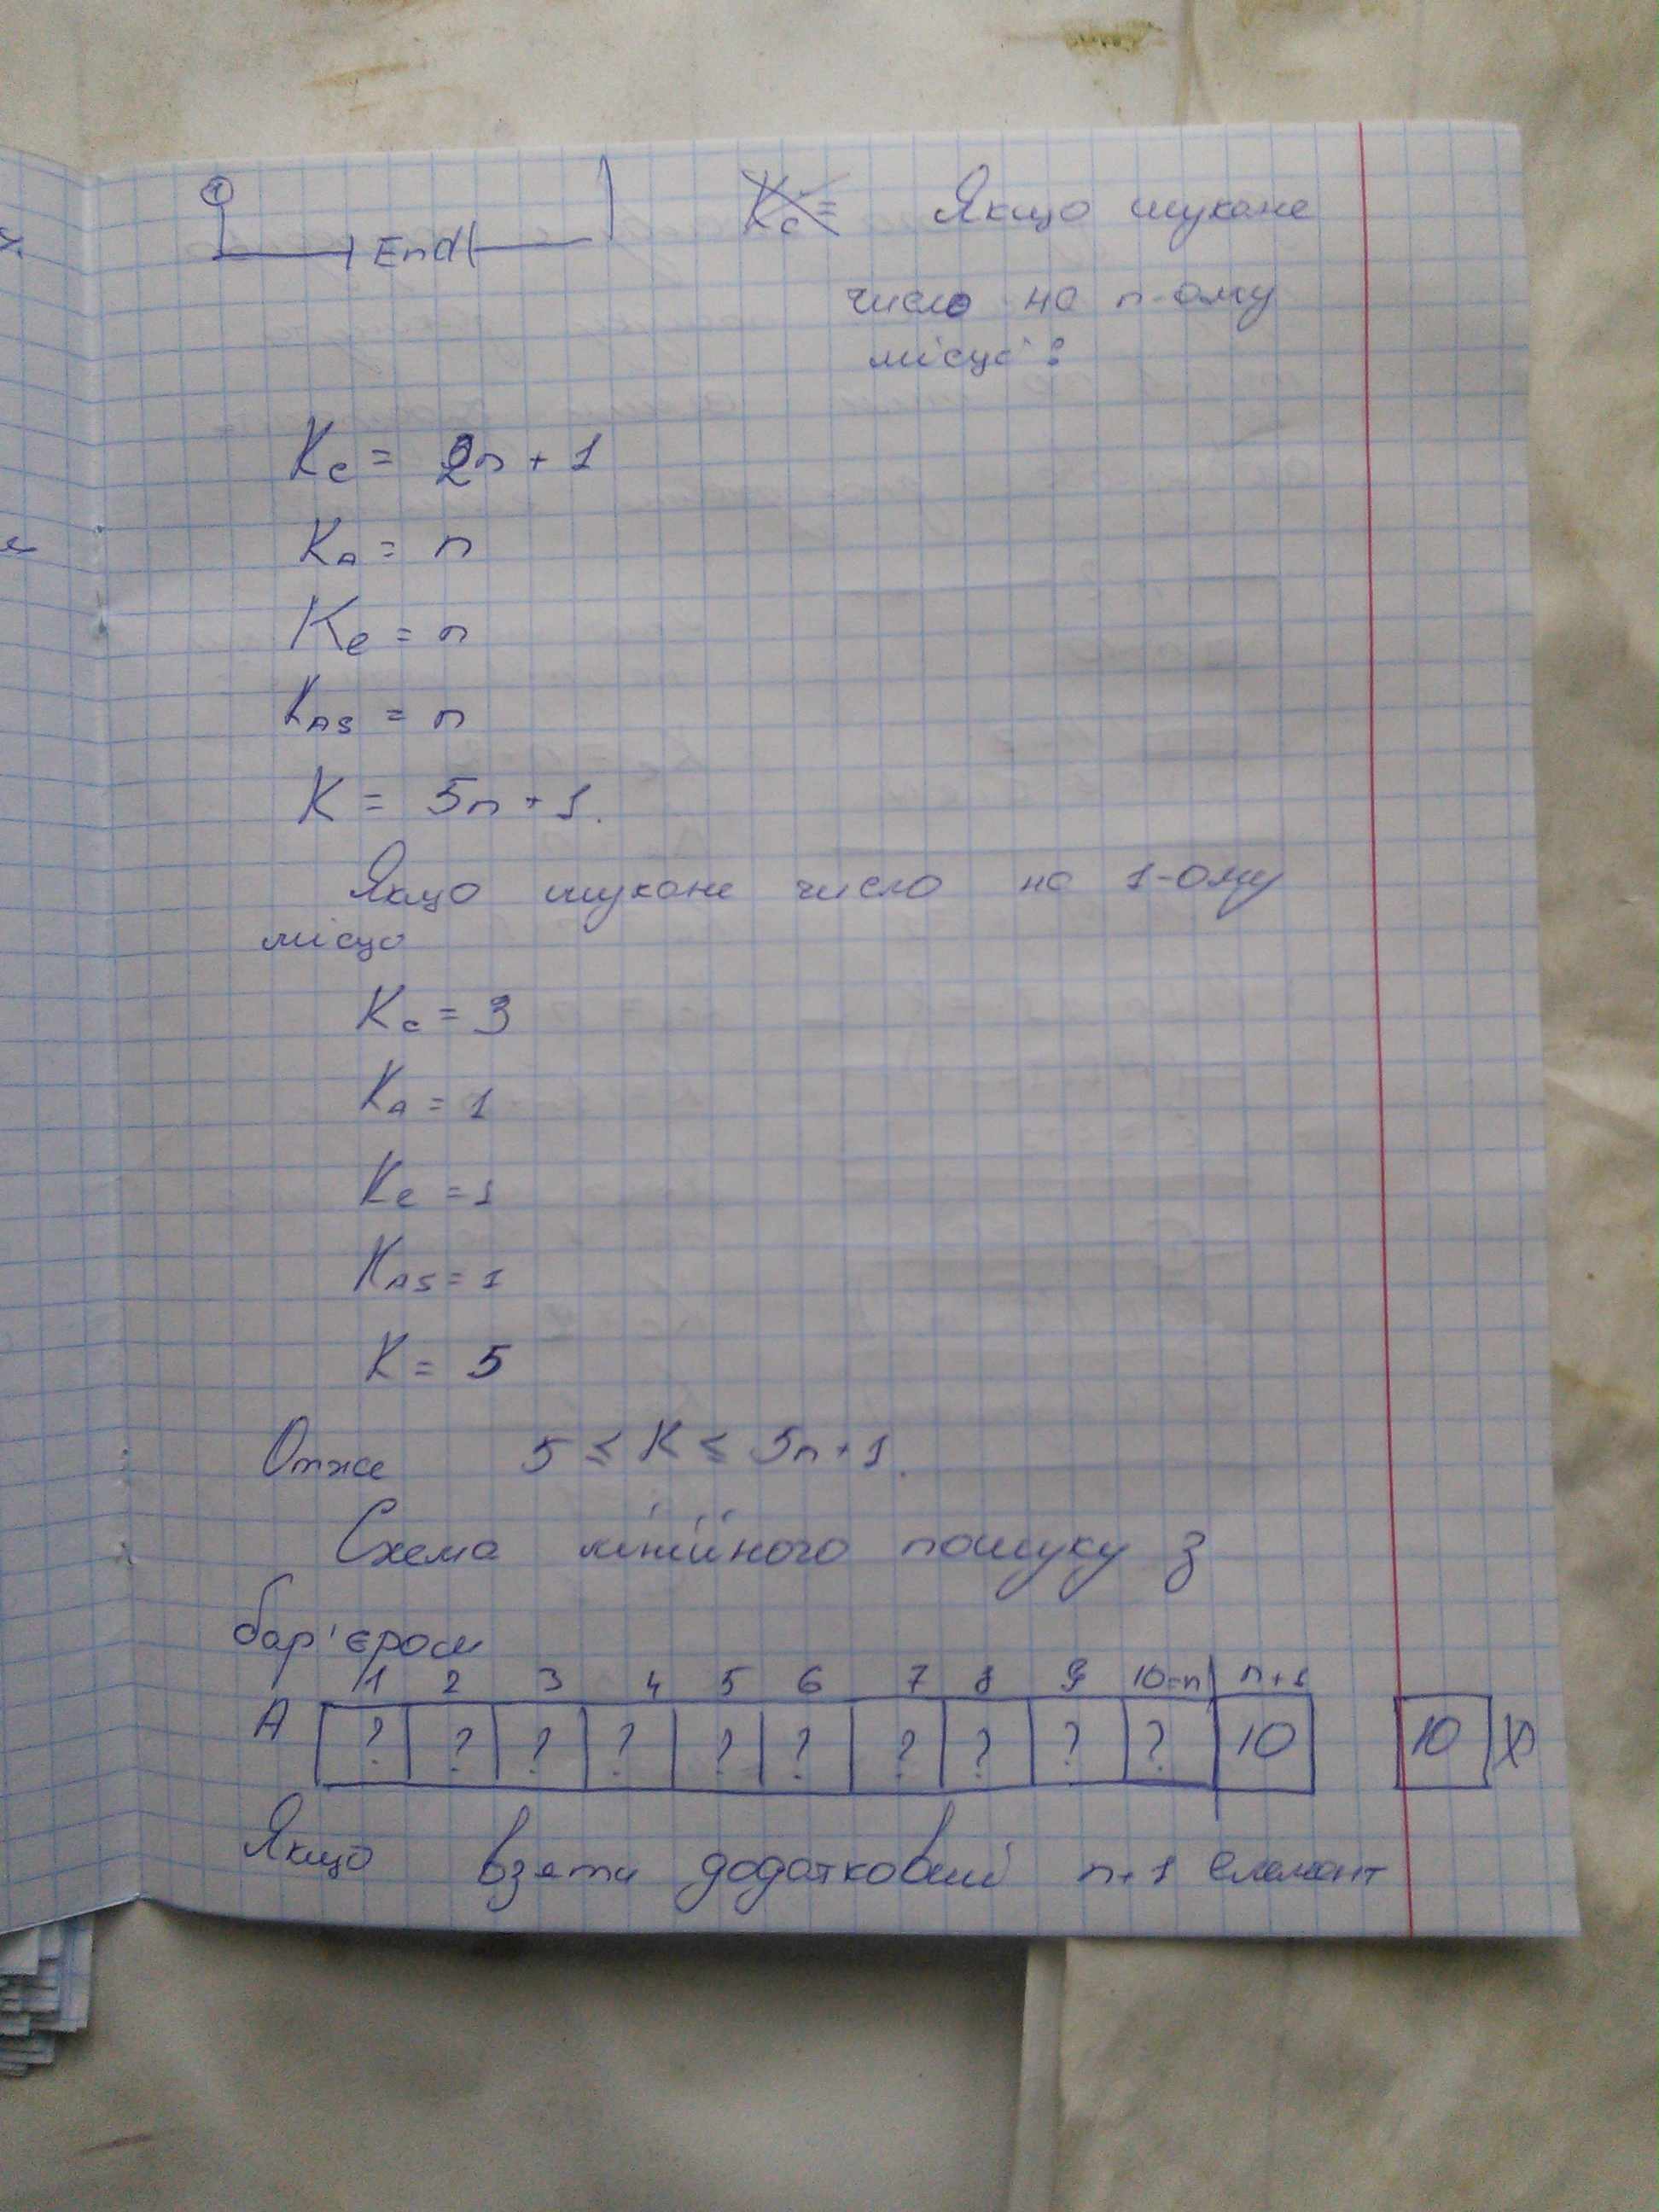 1
End
Kc = Якщо шукане
число на n-ому
місці:
Kc = 2n + 1
KA = n
Ke = n
KAS = n
K = 5n + 1.
Якщо шукане число на 1-ому
місці
Kc = 3
KA = 1
Ke = 1
KAS = 1
K = 5
Отже 5 ≤ K ≤ 5n + 1.
Схема лінійного пошуку з
бар'єром
1 2 3 4 5 6 7 8 9 10=n n+1
A ? ? ? ? ? ? ? ? ? ? 10 10 X
Якщо взяти додатковий n+1 елемент